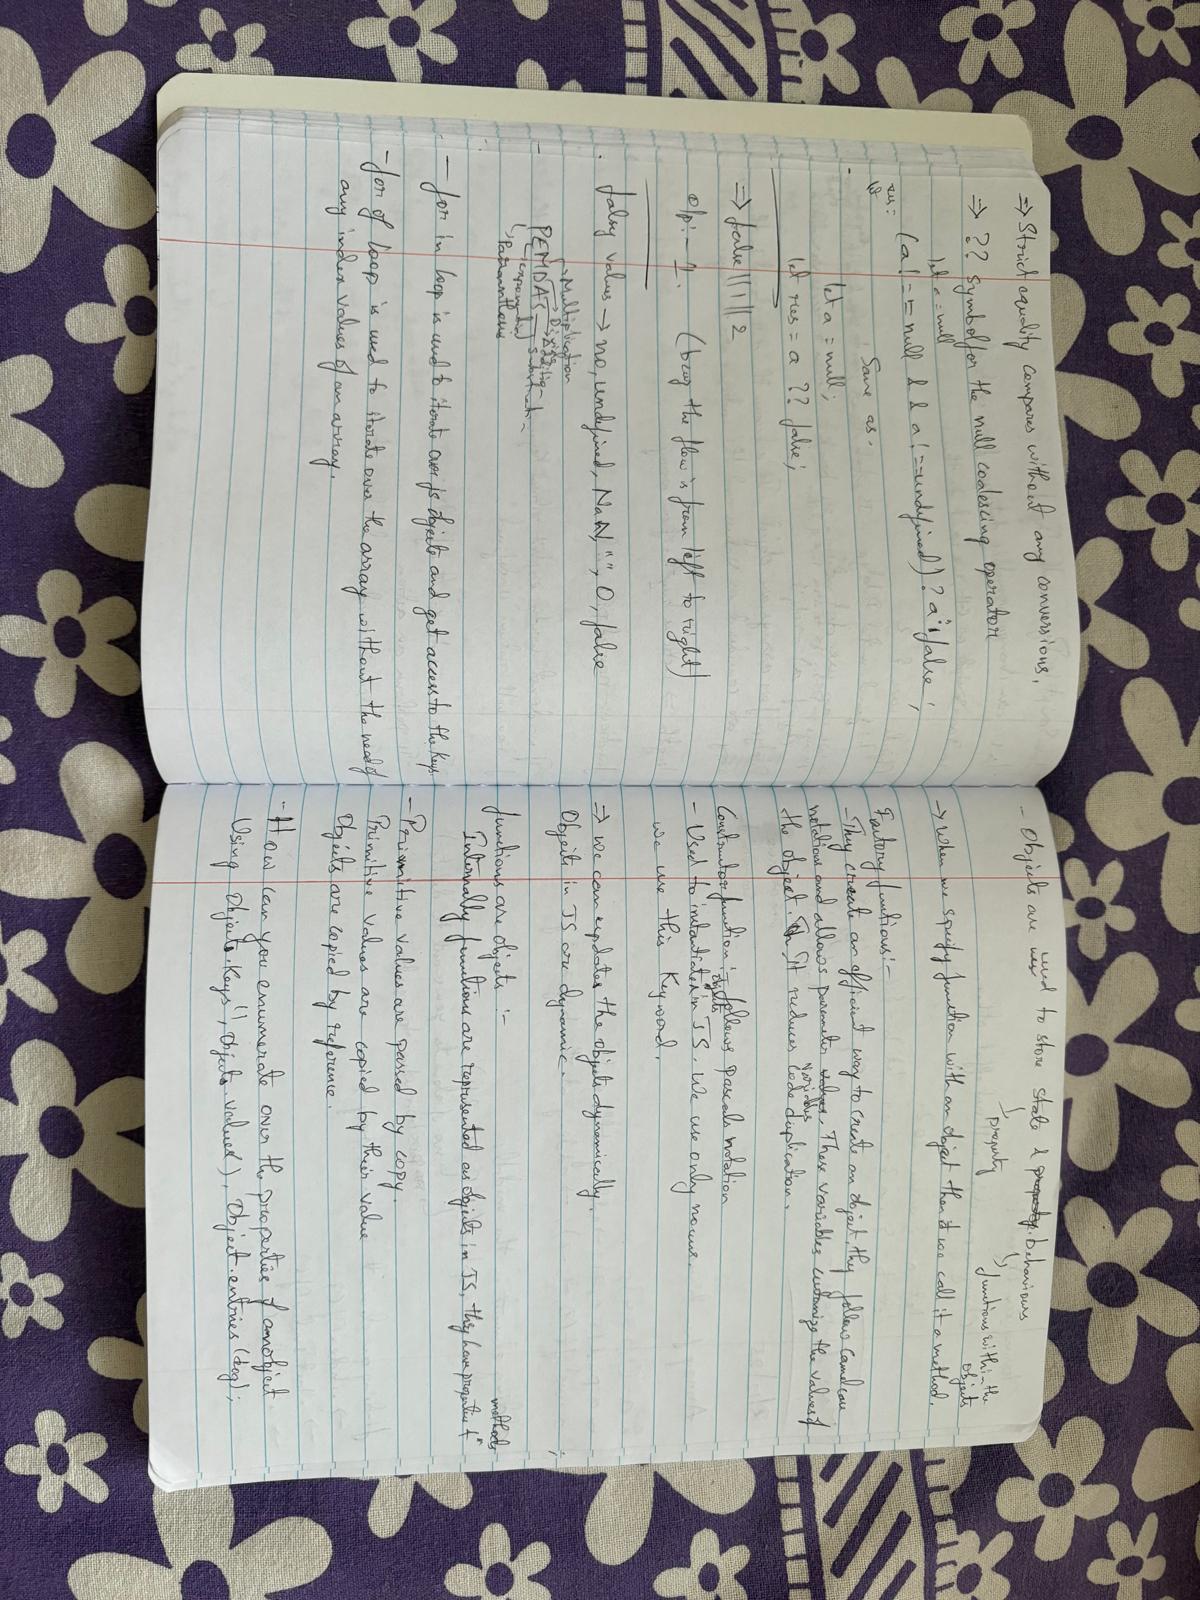 ⇒ Strict equality compares without any conversions.
⇒ ?? Symbol for the null coalescing operator
let a = null
(a !== null && a !== undefined) ? a : false ;
res:
Same as.
let a = null;
let res = a ?? false;
⇒ false || 1 || 2
o/p :- 1. (bcoz the flow is from left to right)
falsy values → no, undefined, NaN, "", 0, false
Multiplication
Divide
Addition
PEMDAS
Subtraction
exponential
Paranthesis
- for in loop is used to iterate over js objects and get access to the keys.
- for of loop is used to iterate over the array without the need of
any index values of an array.
- Objects are used to store state & property. behaviours
property
functions within the
objects
→ When we specify function with an object then it we call it a method.
Factory funtions :-
- They create an efficient way to create an object, they follow camelcase
notations and allows parameter values. These variables customize the values of
variables
the object. It reduces code duplication.
Constructor function :- follows pascals notation
objects
- Used to instantiate in JS. We use only nouns.
we use this Keyword.
⇒ we can updates the objects dynamically.
Objects in JS are dynamic.
functions are objects :-
methods
Internally functions are represented as objects in JS, they have properties &
- Primitive values are passed by copy.
Primitive values are copied by their value
Objects are copied by reference.
- How can you enumerate over the properties of an object
Using Objects.Keys(), Objects.values(), Object.entries(dog);